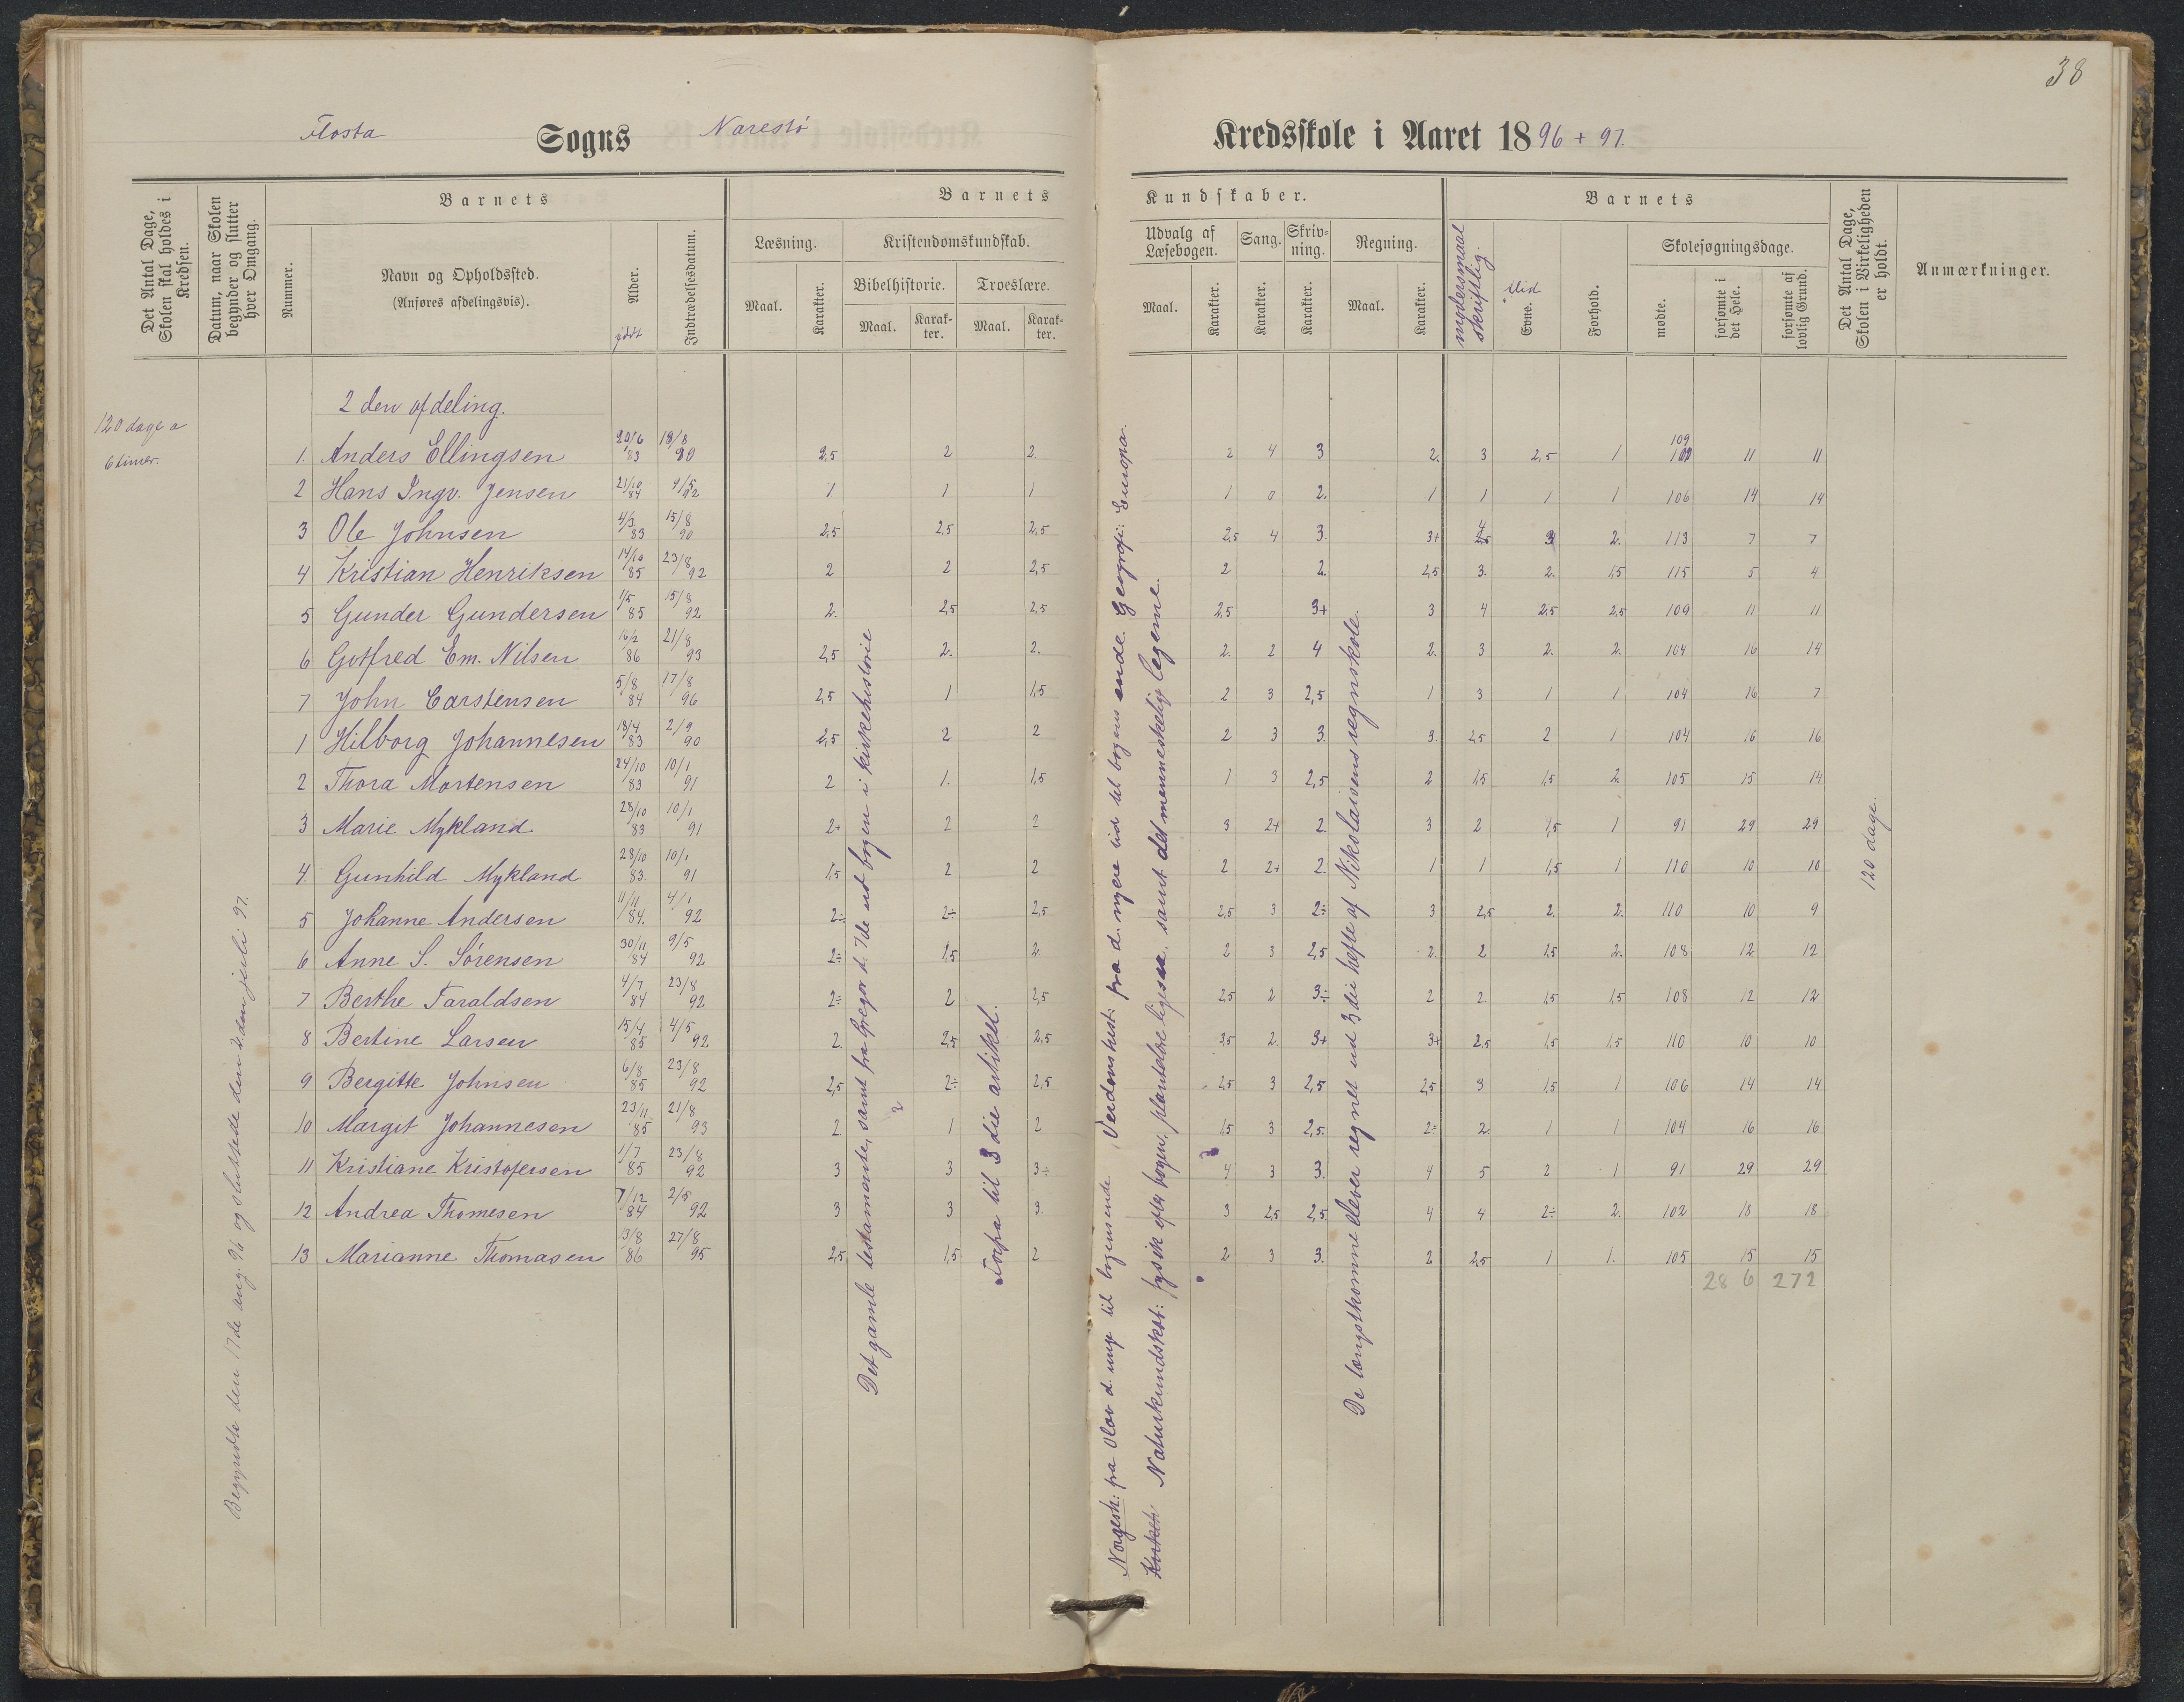 38
Flosta Sogns Narestø Kredsskole i Aaret 1896 + 97.
Det Antal Dage, Skolen skal holdes i Kredsen.
Datum, naar Skolen begynder og slutter hver Omgang.
Barnets
Nummer.
Navn og Opholdssted.
(Anføres afdelingsvis).
Alder.
født
Indtrædelsesdatum.
Barnets Kundskaber.
Læsning.
Maal. Karakter.
Kristendomskundskab.
Bibelhistorie. Troeslære.
Maal. Karak-ter. Maal. Karak-ter.
Udvalg af Læsebogen.
Maal. Karakter.
Sang.
Karakter.
Skriv-ning.
Karakter.
Regning.
Maal. Karakter.
Barnets
modersmaal skriftlig.
Flid
Evne.
Forhold.
Skolesøgningsdage.
mødte. forsømte i det Hele. forsømte af lovlig Grund.
Det Antal Dage, Skolen i Virkeligheden er holdt.
Anmærkninger.
120 dage a
6 timer.
Begyndte den 17de aug. 96 og sluttede den 2den juli 97.
2den afdeling.
1. Anders Ellingsen 20/6 83 19/8 90 2,5 2 2 2 4 3 2. 3 2,5 1 109 11 11
2 Hans Ingv. Jensen 21/10 84 9/5 92 1 1 1 1 0 2. 1 1 1 1 106 14 14
3 Ole Johnsen 4/3 83 15/8 90 2,5 2,5 2,5 2,5 4 3. 3+ 4 3 2. 113 7 7
4 Kristian Henriksen 14/10 85 23/8 92 2 2 2,5 2 2. 2,5 3. 2. 1,5 115 5 4
5 Gunder Gundersen 1/5 85 15/8 92 2. 2,5 2,5 2,5 3+ 3 4 2,5 2,5 109 11 11
6 Gotfred Em. Nilsen 16/2 86 21/8 93 2,5 2. 2. 2. 2 4 2. 3 2. 2. 104 16 14
7 John Carstensen 5/8 84 17/8 96 2,5 1 1,5 2 3 2,5 1 3 1 1 104 16 7
1 Hilborg Johannesen 18/4 83 2/9 90 2,5 2 2 2 3 3. 3. 2,5 2 1 104 16 16
2 Thora Mortensen 24/10 83 10/1 91 2 1. 1,5 1 3 2,5 2 1,5 1,5 2. 105 15 14
3 Marie Mykland 28/10 83 10/1 91 2+ 2 2 3 2+ 2. 3 2 1,5 1 91 29 29
4. Gunhild Mykland 28/10 83. 10/1 91 1,5 2 2 2 2+ 2. 1 1 1,5 1 110 10 10
5 Johanne Andersen 11/11 84. 4/1 92 2÷ 2÷ 2,5 2,5 3 2÷ 3 2,5 2. 2. 110 10 9
6 Anne S. Sørensen 30/11 84 9/5 92 2÷ 1,5 2. 2 3 2,5 2. 2 1,5 2. 108 12 12
7 Berthe Taraldsen 4/7 84 23/8 92 2÷ 2 2,5 2,5 2 3÷ 2 2. 1,5 1,5 108 12 12
8 Bertine Larsen 15/4 85 4/5 92 2. 2,5 2,5 3,5 2. 3+ 3+ 2,5 1,5 1,5 110 10 10
9 Bergitte Johnsen 6/8 85 23/8 92 2,5 2÷ 2,5 2,5 3 2,5 2,5 3 1,5 1 106 14 14
10 Margit Johannesen 23/11 85 21/8 93 2. 1 2 1,5 3 2,5. 2÷ 2. 1 1 104 16 16
11 Kristiane Kristofersen 1/7 85 23/8 92 3 3 3÷ 4 3 3. 4 5 2 1 91 29 29
12 Andrea Thomesen 7/12 84 2/5 92 3 3 3 3 2,5 2,5 4 4 2÷ 2. 102 18 18
13 Marianne Thomasen 13/8 86 27/8 95 2,5 1,5 2 2 3 3. 2 2,5 1 1. 105 15 15
286 272
Det gamle testamente, samt fra Gregor d. 7de ud bogen i kirkehistorie
Torpa til 3die artikel.
Norgesh: fra Olav d. unge til bogens ende. Verdenshist: fra d. nyere tid til bogens ende. Geografi: Europa.
Naturkundskab: fysik efter bogen, planteløre ligesaa, samt det menneskelig legeme.
De længstkomne elever regnet ud 3die hefte af Nikolaisens regneskole.
120 dage